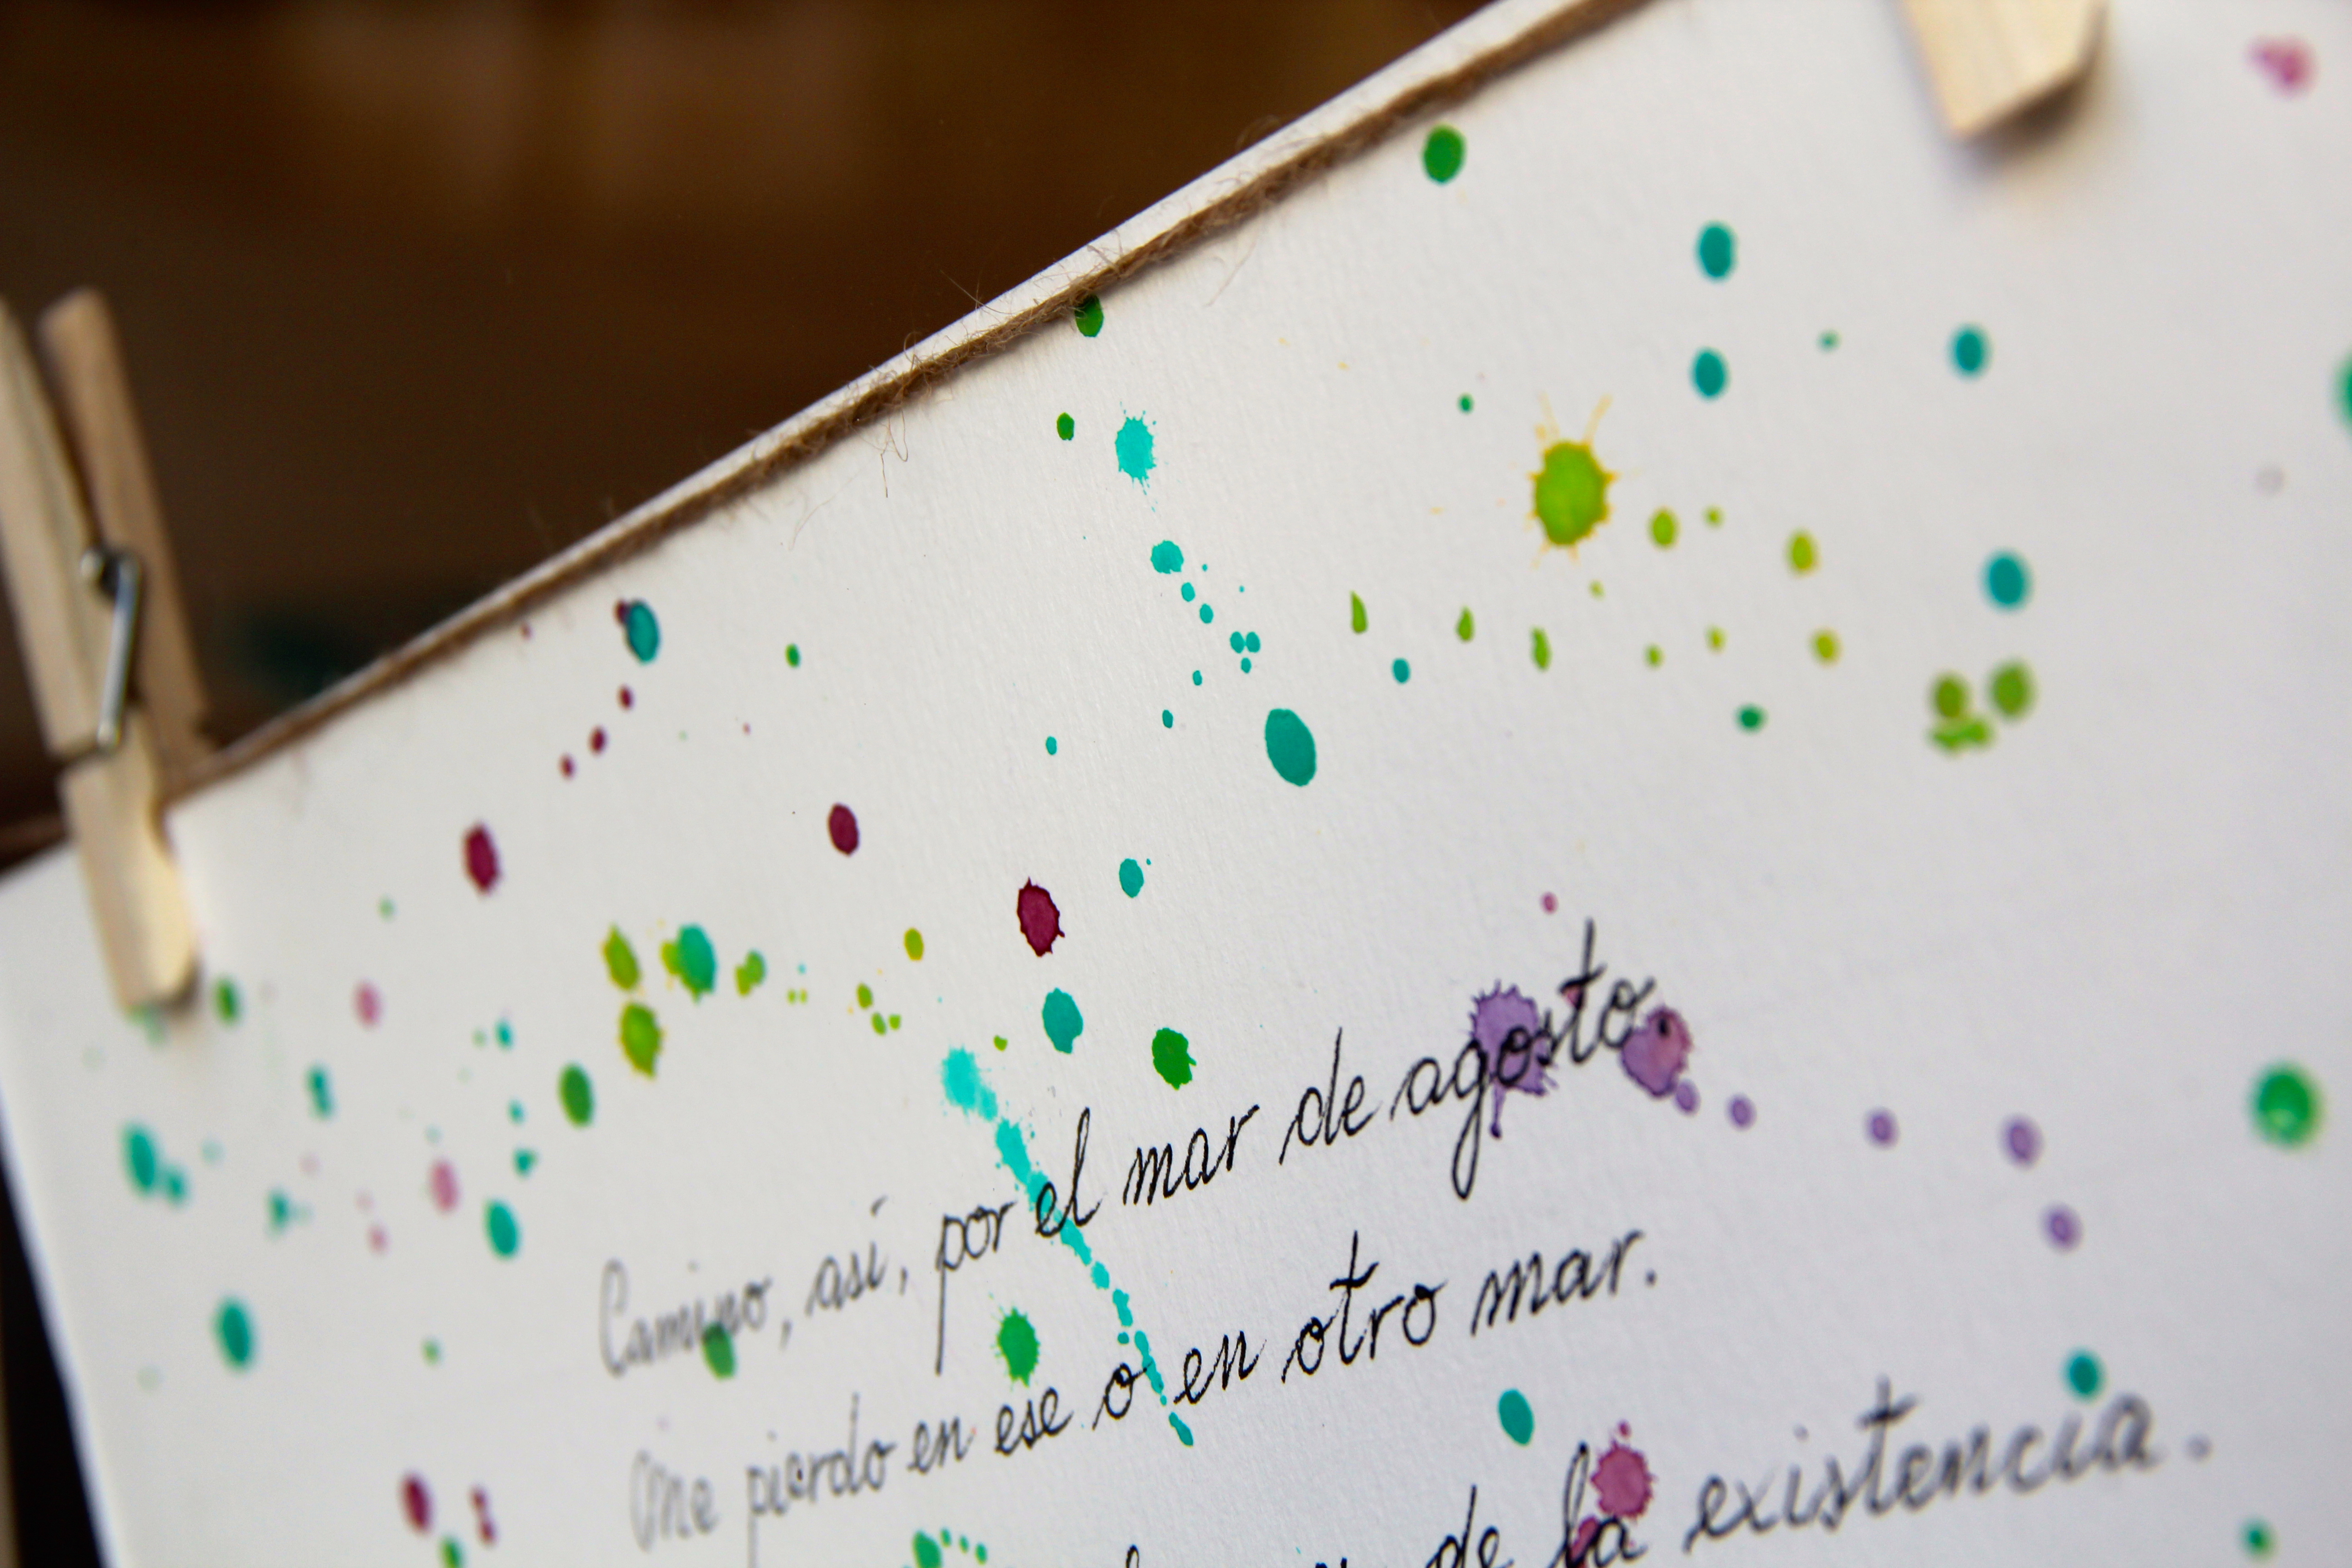 Camino, así, por el mar de agosto.
Me pierdo en ese o en otro mar.
de la existencia.